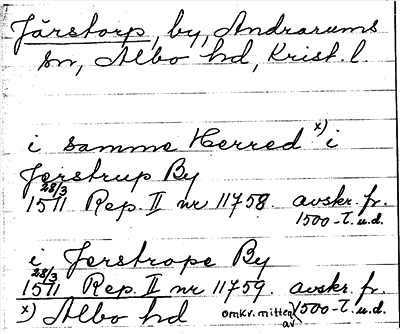 Järstorp, by, Andrarums
sn, Albo hd, Krist. l.
i samme Herred x) i
Jerstrup By
28/3
1511 Rep. II nr 11758. avskr. fr.
1500-t. u.d.
i Jerstrope By
28/3
1511 Rep. II nr 11759. avskr. fr.
x) Albo hd omkr. mitten av 1500-t. u.d.